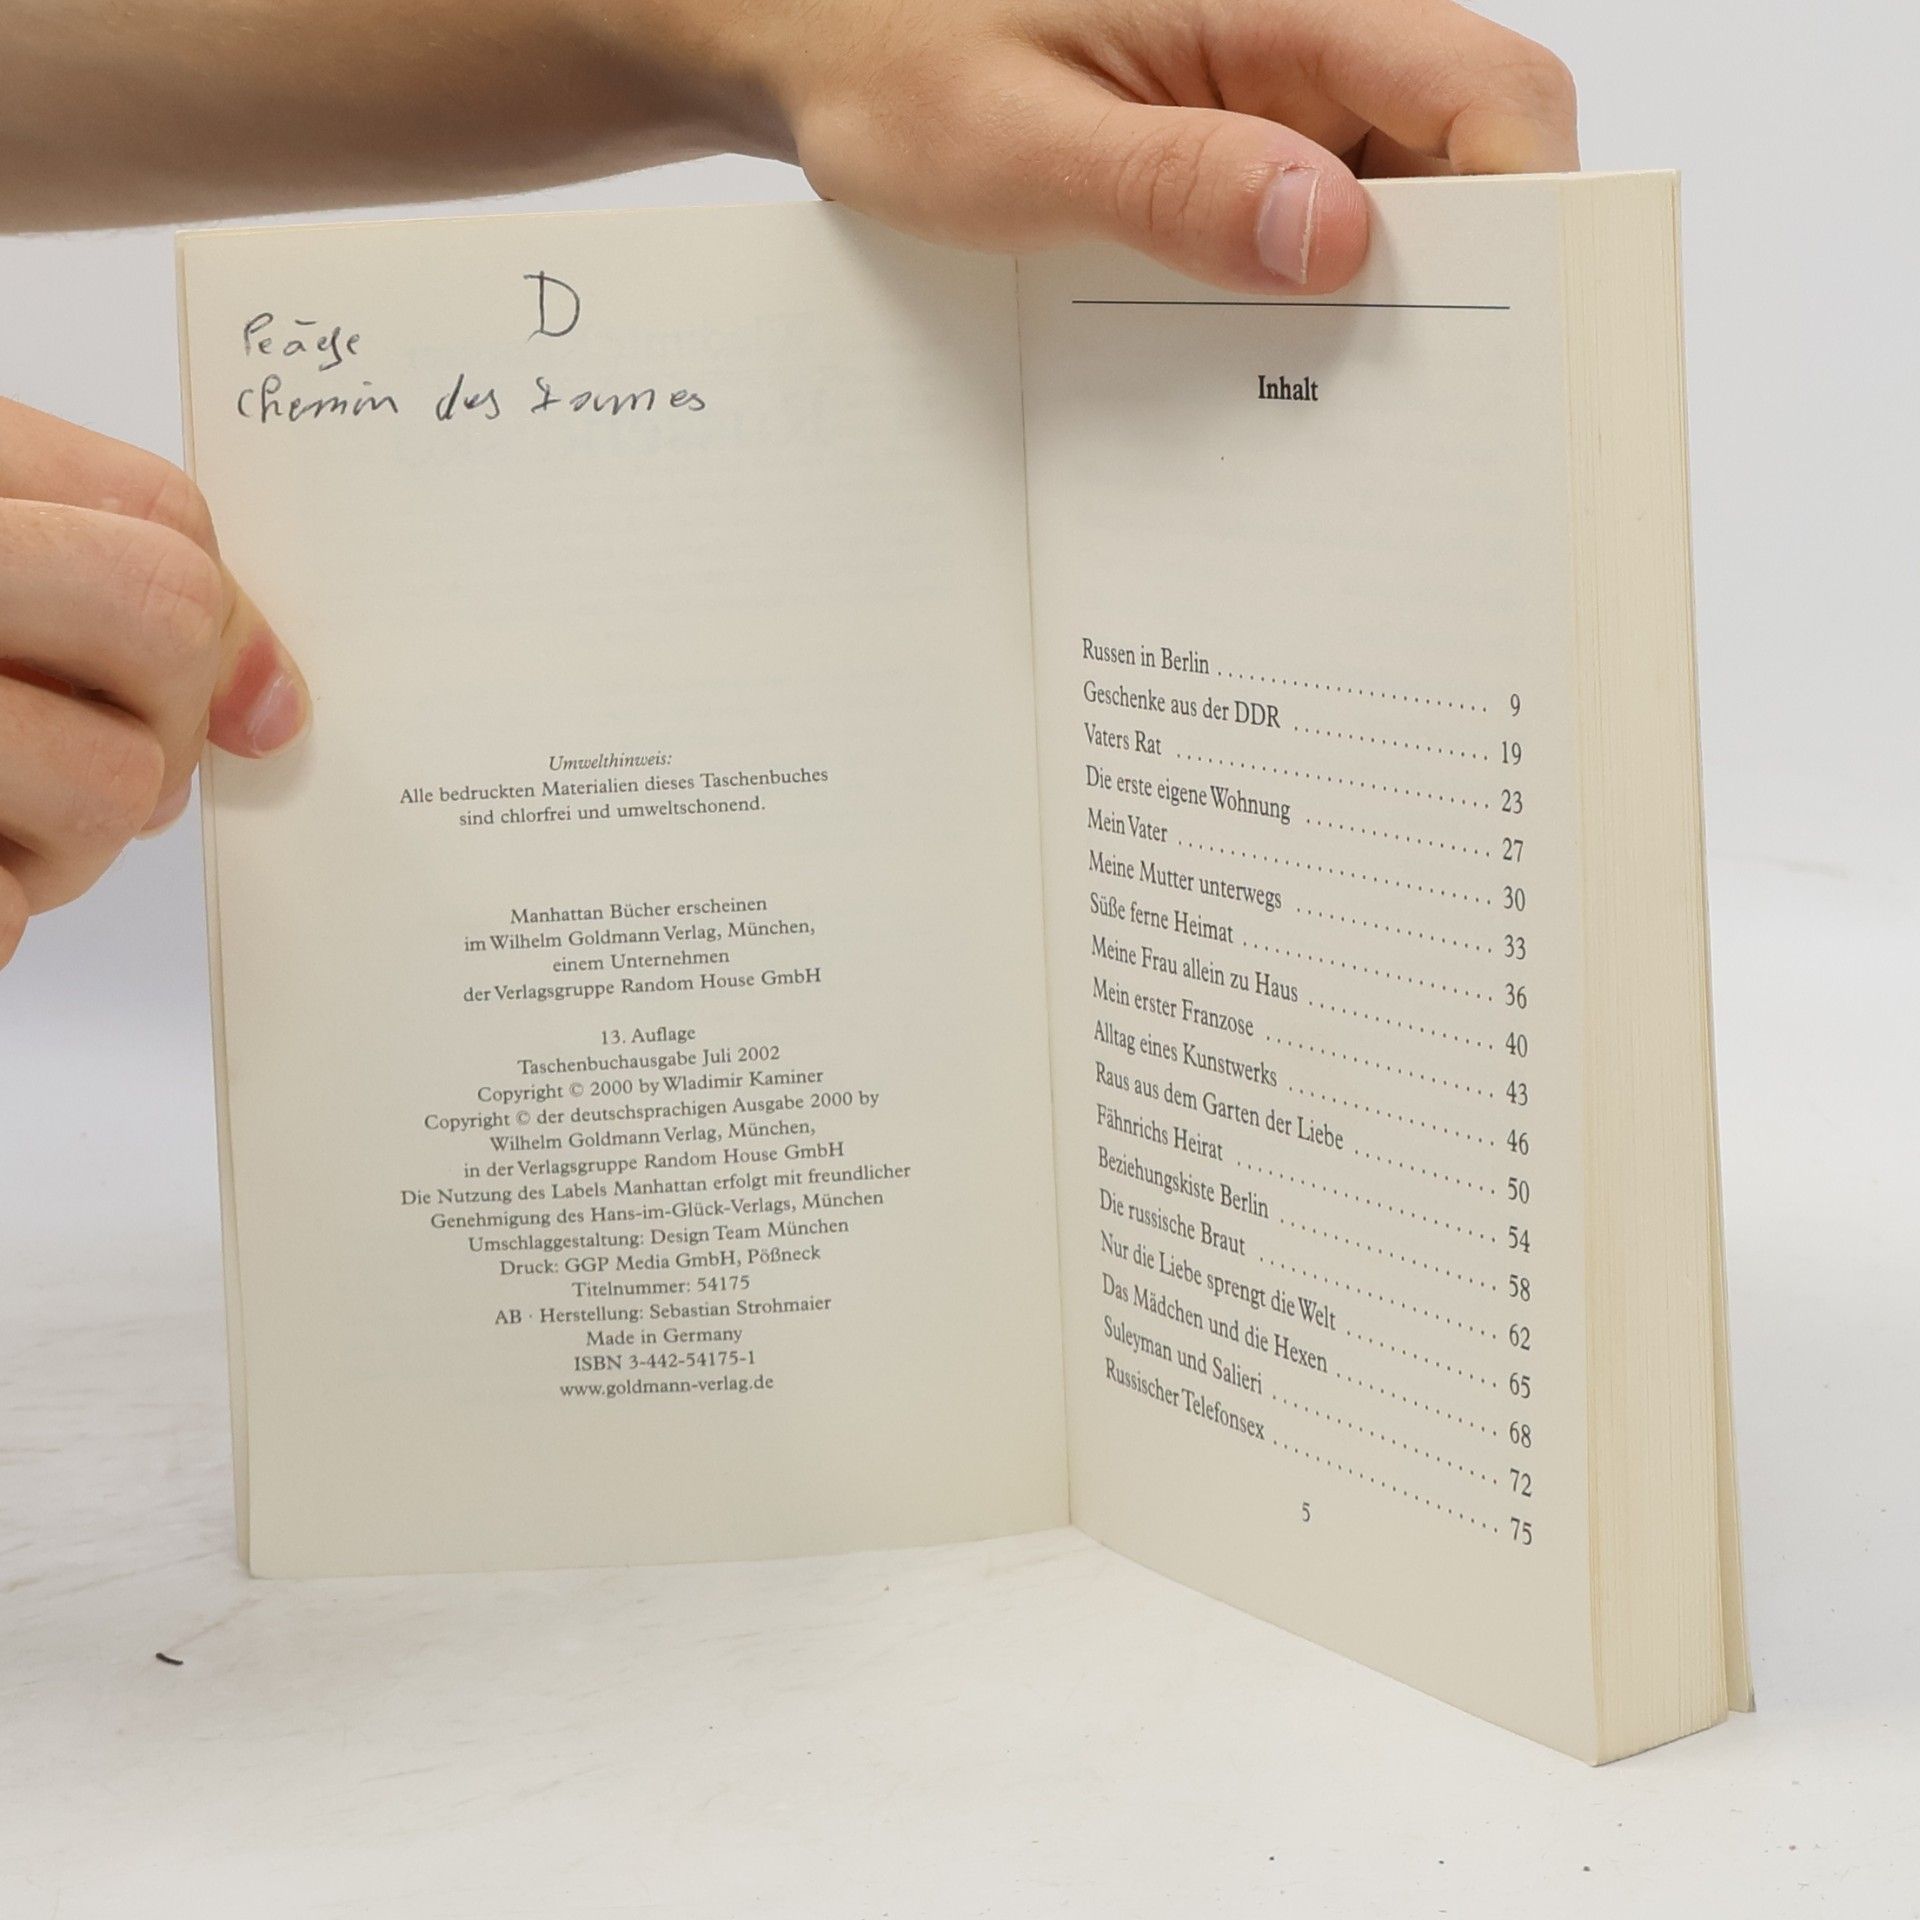 D
Péage
Chemin des Dames
Umwelthinweis:
Alle bedruckten Materialien dieses Taschenbuches
sind chlorfrei und umweltschonend.
Manhattan Bücher erscheinen
im Wilhelm Goldmann Verlag, München,
einem Unternehmen
der Verlagsgruppe Random House GmbH
13. Auflage
Taschenbuchausgabe Juli 2002
Copyright © 2000 by Wladimir Kaminer
Copyright © der deutschsprachigen Ausgabe 2000 by
Wilhelm Goldmann Verlag, München,
in der Verlagsgruppe Random House GmbH
Die Nutzung des Labels Manhattan erfolgt mit freundlicher
Genehmigung des Hans-im-Glück-Verlags, München
Umschlaggestaltung: Design Team München
Druck: GGP Media GmbH, Pößneck
Titelnummer: 54175
AB · Herstellung: Sebastian Strohmaier
Made in Germany
ISBN 3-442-54175-1
www.goldmann-verlag.de
Inhalt
Russen in Berlin . . . . . . . . . . 9
Geschenke aus der DDR . . . . . . . . . . 19
Vaters Rat . . . . . . . . . . 23
Die erste eigene Wohnung . . . . . . . . . . 27
Mein Vater . . . . . . . . . . 30
Meine Mutter unterwegs . . . . . . . . . . 33
Süße ferne Heimat . . . . . . . . . . 36
Meine Frau allein zu Haus . . . . . . . . . . 40
Mein erster Franzose . . . . . . . . . . 43
Alltag eines Kunstwerks . . . . . . . . . . 46
Raus aus dem Garten der Liebe . . . . . . . . . . 50
Fähnrichs Heirat . . . . . . . . . . 54
Beziehungskiste Berlin . . . . . . . . . . 58
Die russische Braut . . . . . . . . . . 62
Nur die Liebe sprengt die Welt . . . . . . . . . . 65
Das Mädchen und die Hexen . . . . . . . . . . 68
Suleyman und Salieri . . . . . . . . . . 72
Russischer Telefonsex . . . . . . . . . . 75
5